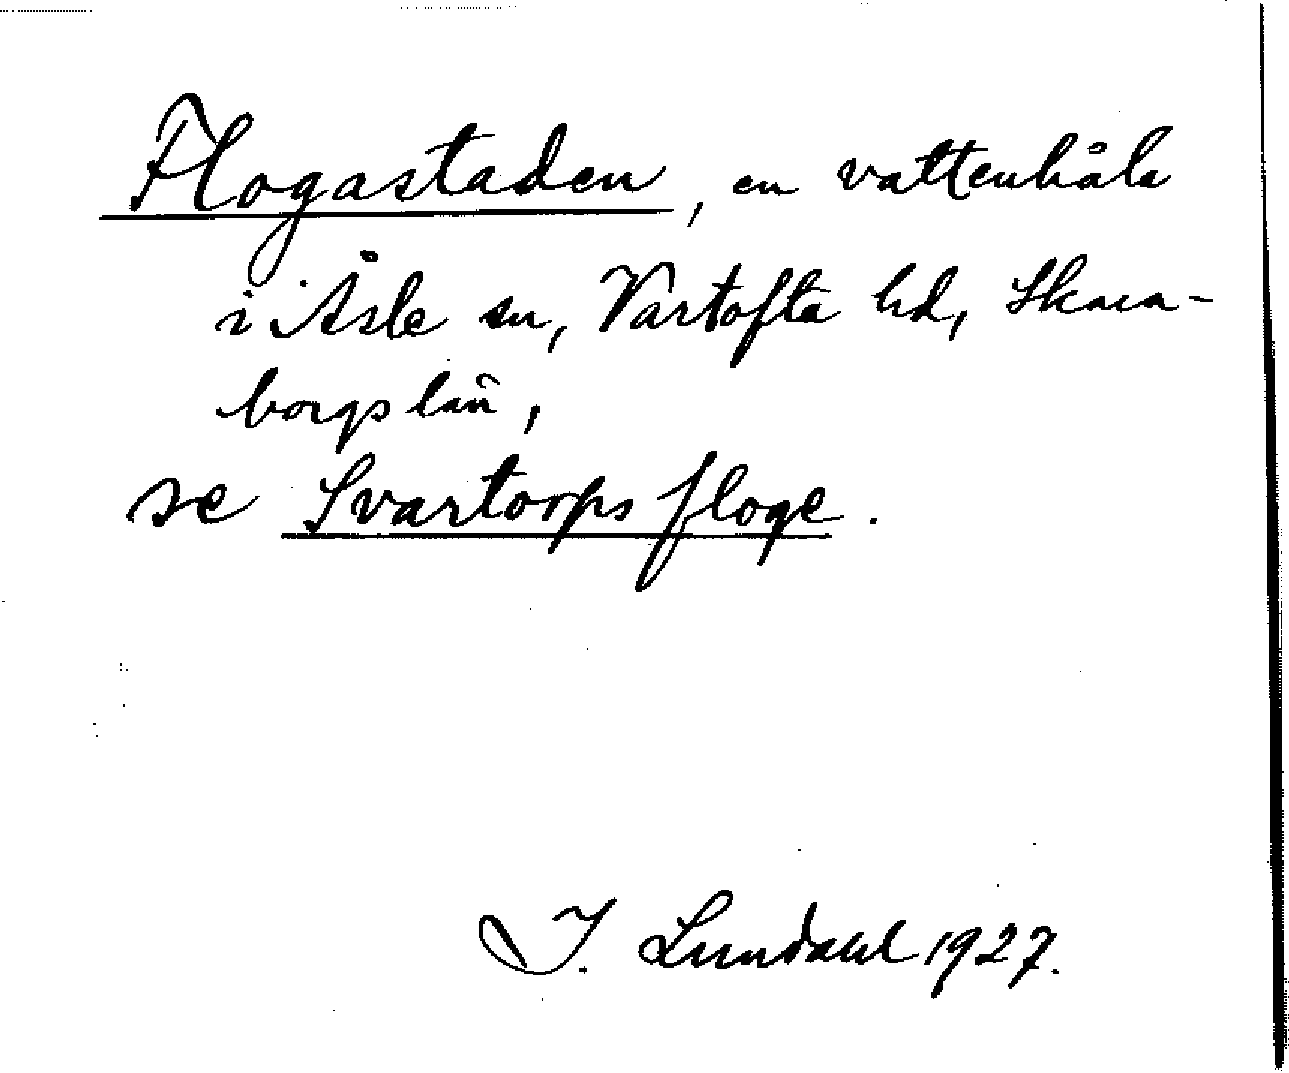 Flogastaden, en vattenhåla
i Åsle sn, Vartofta hd, Skara-
borgs län,
se Svartorps floge.
I. Lundahl 1927.